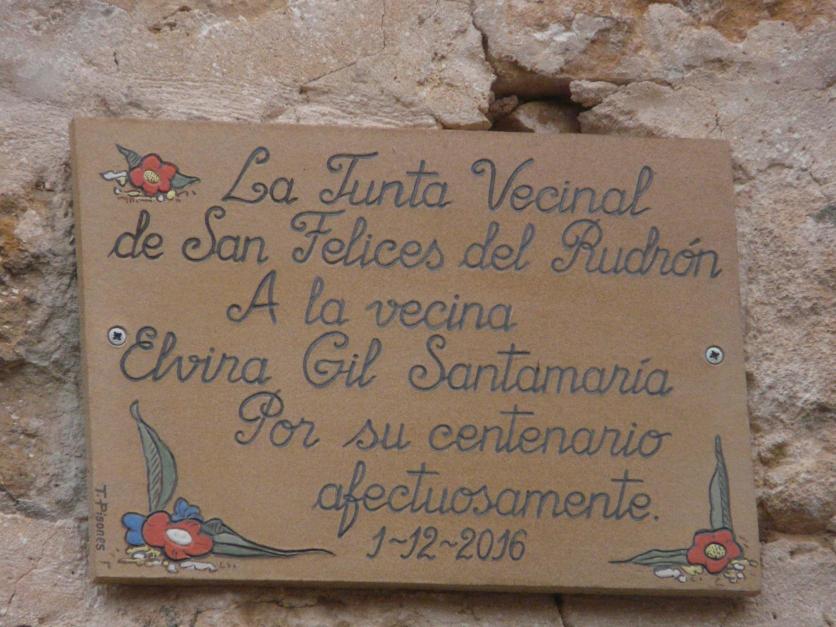 La Junta Vecinal
de San Felices del Rudrón
A la vecina
Elvira Gil Santamaría
Por su centenario
afectuosamente.
1-12-2016
T-Pisones